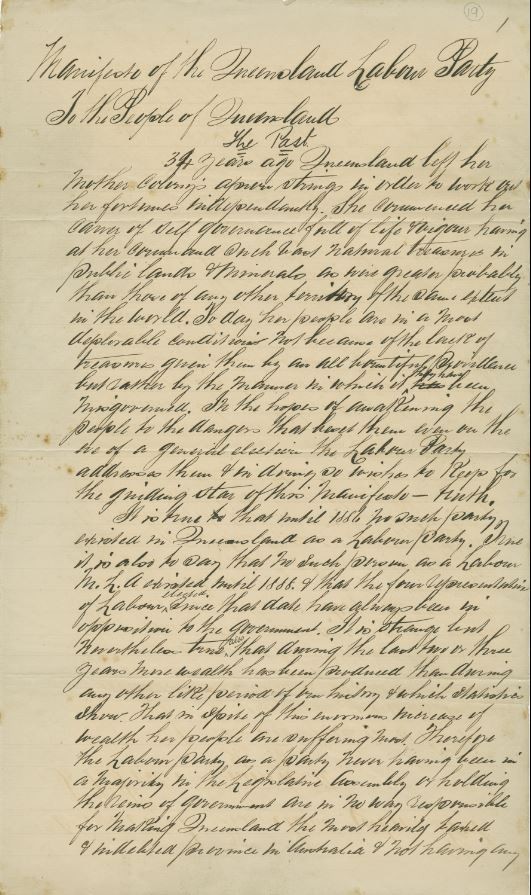 19
1
Manifesto of the Queensland Labour Party
To the People of Queensland
The Past
34 years ago Queensland left her
Mother Colony's apron strings in order to work out
her fortunes independently. She commenced her
career of self governance full of life & vigour having
at her command such vast natural treasures in
public lands & minerals as were greater probably
than those of any other territory of the same extent
in the world. To day her people are in a most
deplorable condition not because of the lack of
treasures given them by an all bountiful Providence
but rather by the manner in which they have been
misgoverned. In the hopes of awakening the
people to the dangers that beset them even on the
eve of a general election the Labour Party
address them & in doing so wishes to keep for
the guiding star of this Manifesto — truth.
It is true that until 1886 no such party
existed in Queensland as a Labour Party. True
it is also to say that no such person as a Labour
M.L.A existed until 1888. & that the four representatives
of Labour elected since that date have always been in
opposition to the government. It is strange but
nevertheless true also that during the last two or three
years more wealth has been produced than during
any other like period of our history & which statistics
show. That in spite of this enormous increase of
wealth her people are suffering most. Therefore
the Labour Party as a party never having been in
a majority in the Legislative Assembly or holding
the reins of government are in no way responsible
for making Queensland the most heavily taxed
& indebted province in Australia & not having any